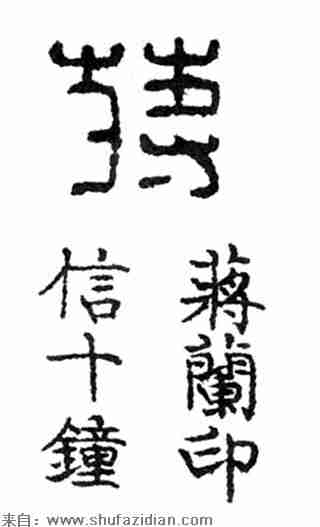 蔣蘭印
信十鐘
来自：www.shufazidian.com